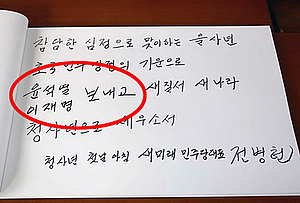 참담한 심정으로 맞이하는 을사년
기운으로
윤석열 보내고 새질서 새나라
이재명
청사년으로 세우소서
청사년 첫날 아침 새미래 민주당대표 전병헌